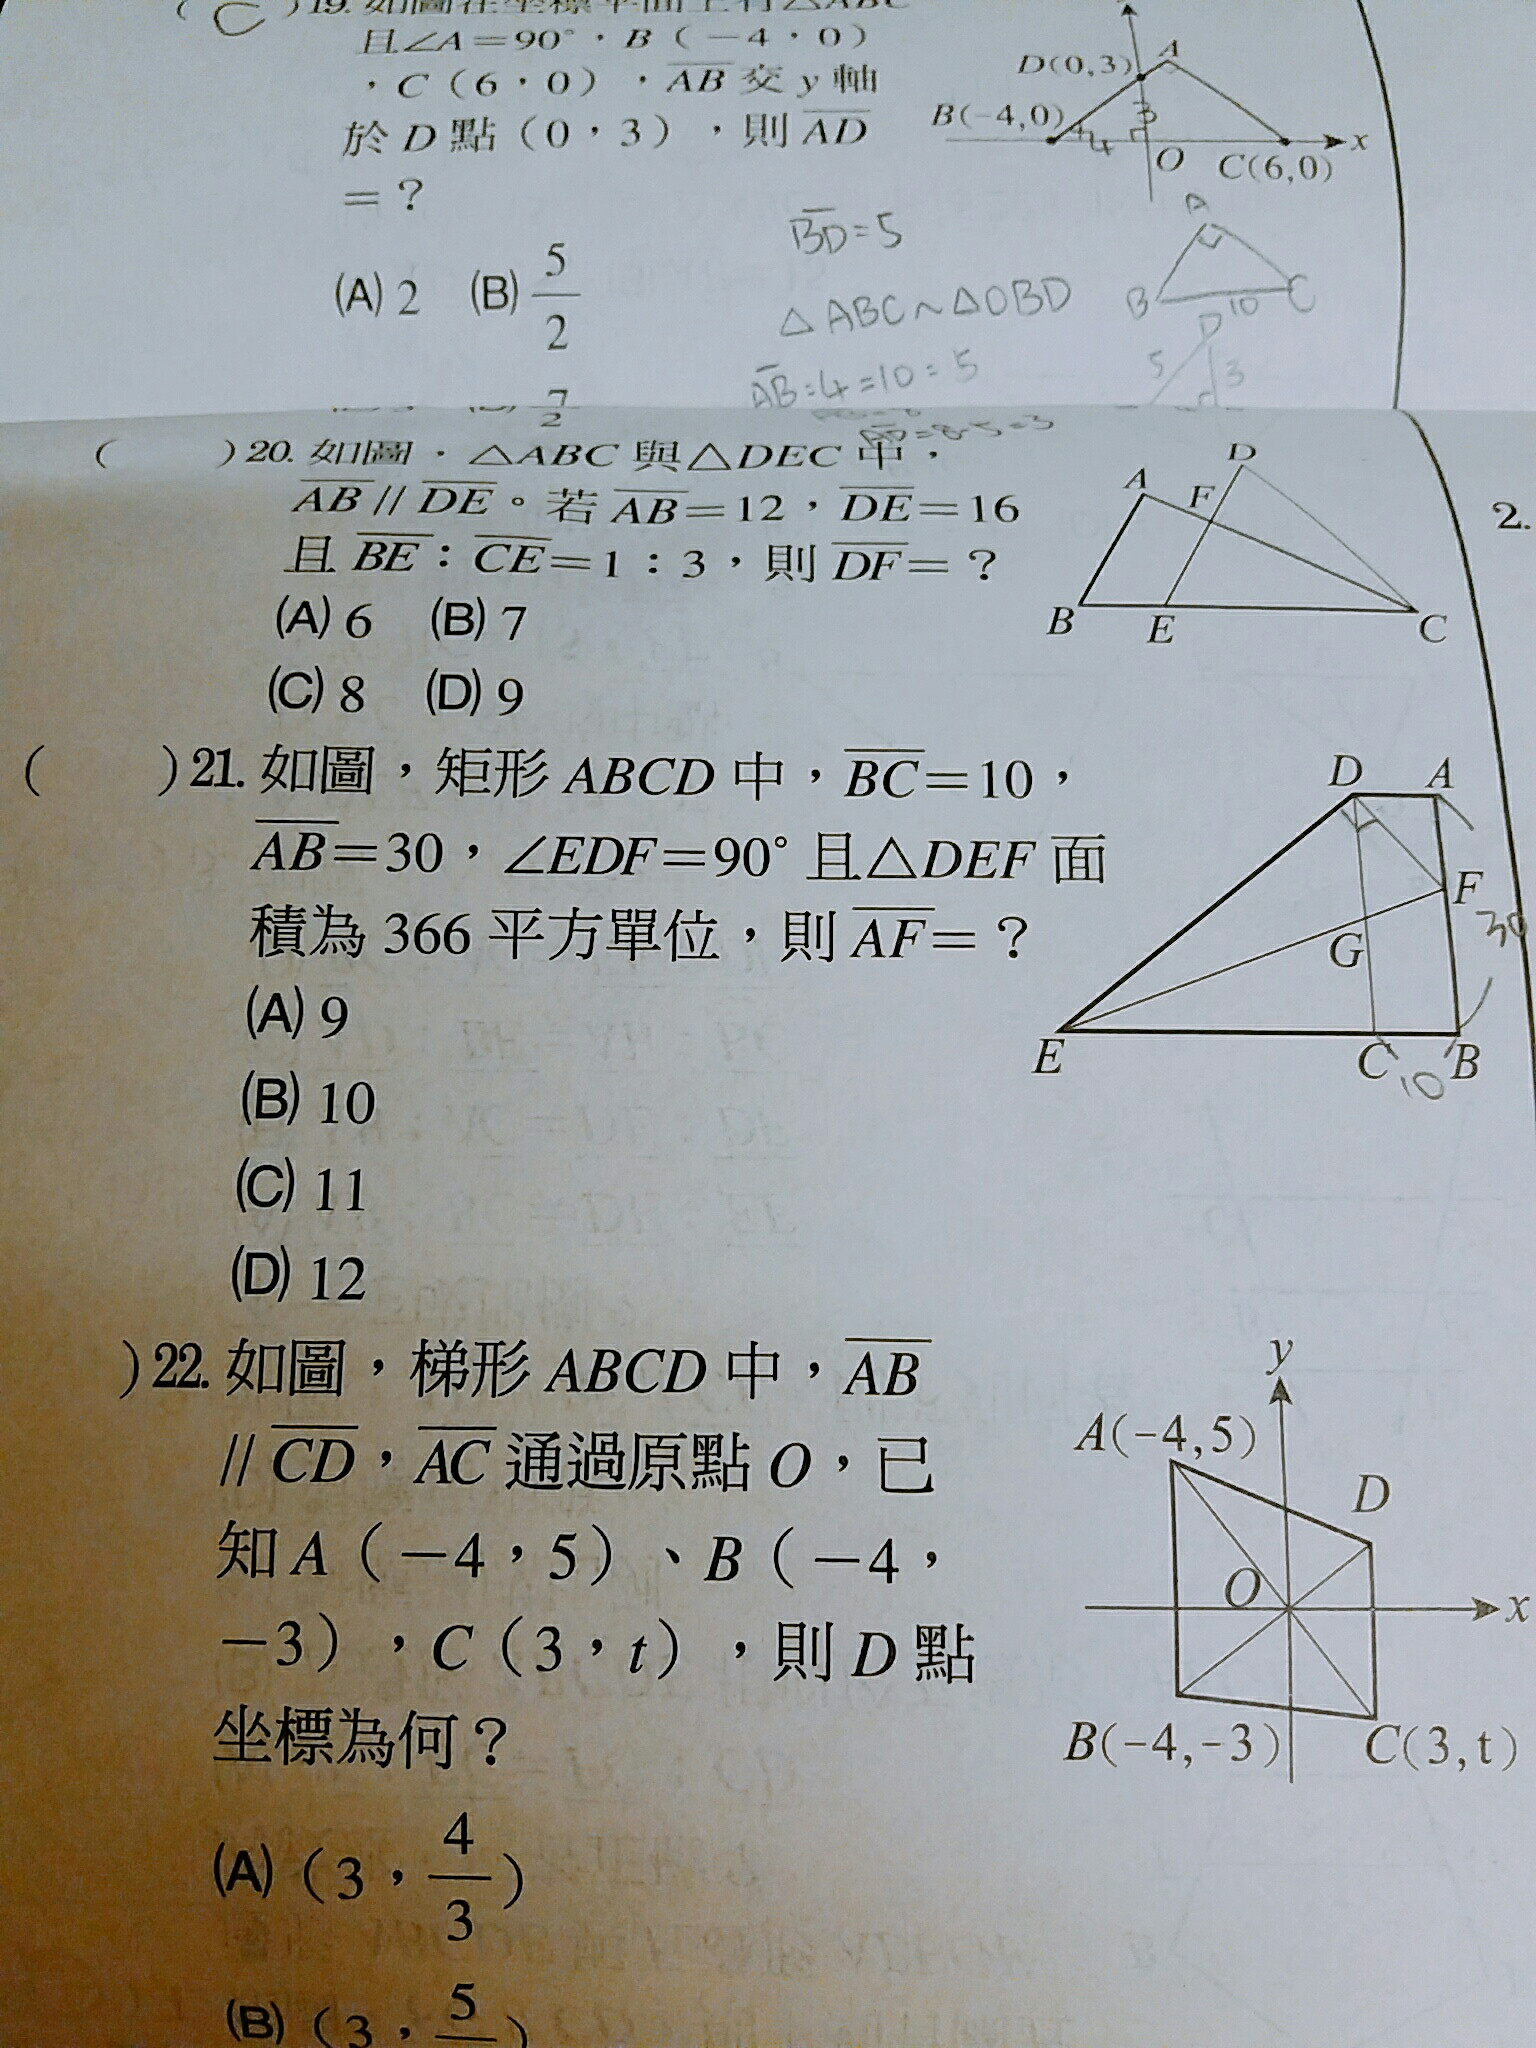 ( C )19. 如圖在坐標平面上有△ABC
且∠A=90°,B(-4,0)
,C(6,0),AB 交 y 軸
於 D 點(0,3),則 AD
=?
(A) 2 (B) 5/2
7/2
D(0,3) A
B(-4,0) 4 3 O C(6,0) x
BD=5
△ABC~△OBD
AB:4=10:5
AD=8-5=3
A
B 10 C
D
5 3
( )20. 如圖,△ABC 與△DEC 中,
AB // DE。若 AB=12,DE=16
且 BE:CE=1:3,則 DF=?
(A) 6 (B) 7
(C) 8 (D) 9
A F D
B E C
2.
( )21. 如圖,矩形 ABCD 中,BC=10,
AB=30,∠EDF=90° 且△DEF 面
積為 366 平方單位,則 AF=?
(A) 9
(B) 10
(C) 11
(D) 12
D A
F
30
G
E C 10 B
)22. 如圖,梯形 ABCD 中,AB
// CD,AC 通過原點 O,已
知 A(-4,5)、B(-4,
-3),C(3,t),則 D 點
坐標為何?
(A) (3,4/3)
(B) (3,5
y
A(-4,5) D
O x
B(-4,-3) C(3,t)